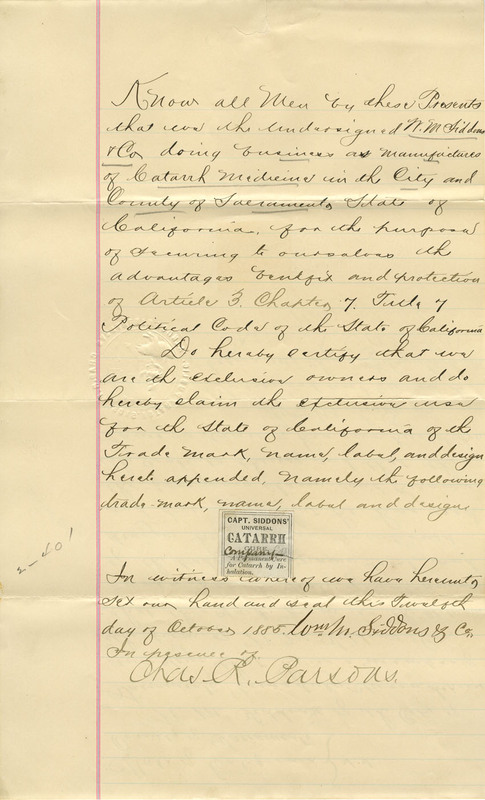 Know all Men by these Presents
that we the undersigned W. M Siddons
& Co, doing business as manufactures
of Catarrh Medicine in the City and
County of Sacramento State of
California, for the purpose
of securing to ourselves the
advantages benefit and protection
of Article 3. Chapter 7. Title 7
Political Code of the State of California
Do hereby certify that we
are the exclusive owners and do
hereby claim the exclusive use
for the State of California of the
Trade mark, name, label, and design
hereto appended, namely the following
trade-mark, name, label and design,
CAPT. SIDDONS'
UNIVERSAL
CATARRH
Company
A Permanent Cure
for Catarrh by In-
halation.
In witness whereof we have hereunto
set our hand and seal this Twelfth
day of October 1885. Wm M. Siddons & Co,
In presence of
Chas. R. Parsons.